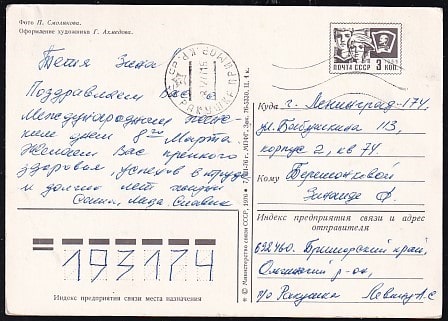 Фото П. Смолякова.
Оформление художника Г. Ахмедова.
Тетя Зина!
Поздравляем Вас с
Международным женс-
ким днем 8ое Марта
Желаем Вас крепкого
здоровья, успехов в труде
и долгих лет жизни
Лида Славик
193174
Индекс предприятия связи места назначения
© Министерство связи СССР, 1976
ПОЧТА СССР 3 КОП.
Куда г. Ленинград-174,
ул. Бабушкина 113,
корпус 2, кв 74.
Кому
Зинаиде Ф.
Индекс предприятия связи и адрес
отправителя
692460. Приморский край,
Ольгинский р-он,
п/о Ракушка Левину А.С